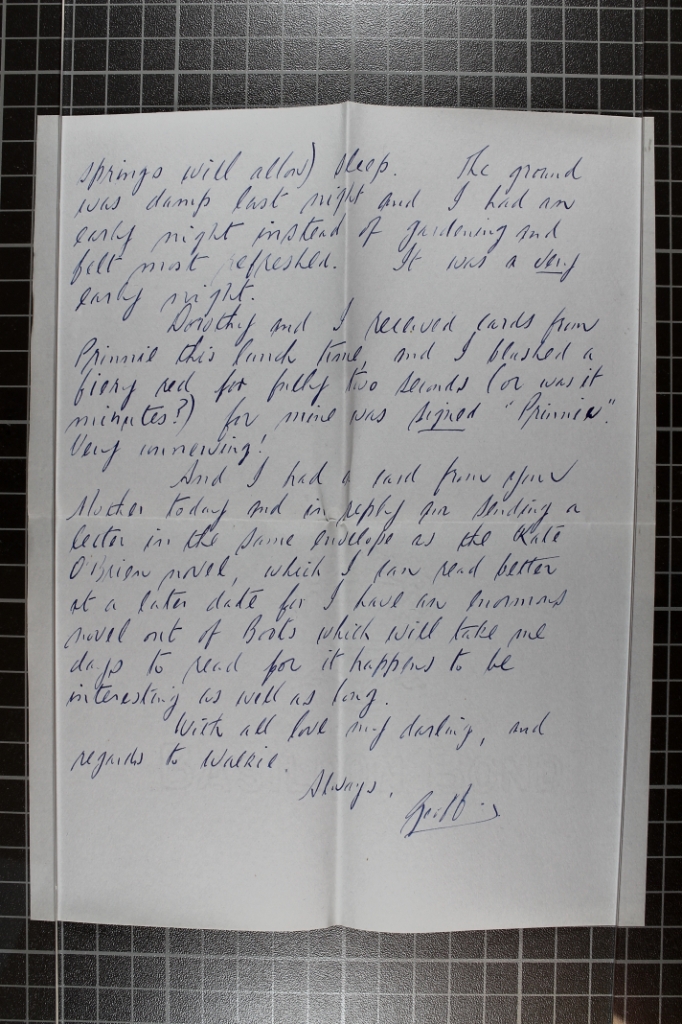 springs will allow) sleep. The ground
was damp last night and I had an
early night instead of gardening and
felt most refreshed. It was a very
early night.
Dorothy and I received cards from
Prinnie this lunch time, and I blushed a
fiery red for fully two seconds (or was it
minutes?) for mine was signed "Prinnie".
Very unnerving!
And I had a card from your
Mother today and in reply am sending a
letter in the same envelope as the Kate
O'Brien novel, which I can read better
at a later date for I have an enormous
novel out of Boots which will take me
days to read for it happens to be
interesting as well as long.
With all love my darling, and
regards to Walkie.
Always,
Geoff.